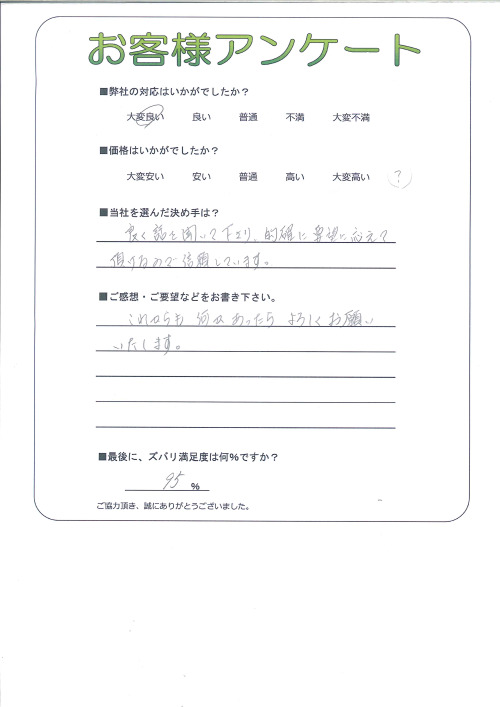 お客様アンケート
■弊社の対応はいかがでしたか？
大変良い 良い 普通 不満 大変不満
■価格はいかがでしたか？
大変安い 安い 普通 高い 大変高い ?
■当社を選んだ決め手は？
良く話を聞いて下さり、的確に要望に応えて
頂けるので信頼しています。
■ご感想・ご要望などをお書き下さい。
これからも何かあったらよろしくお願い
いたします。
■最後に、ズバリ満足度は何％ですか？
95 ％
ご協力頂き、誠にありがとうございました。